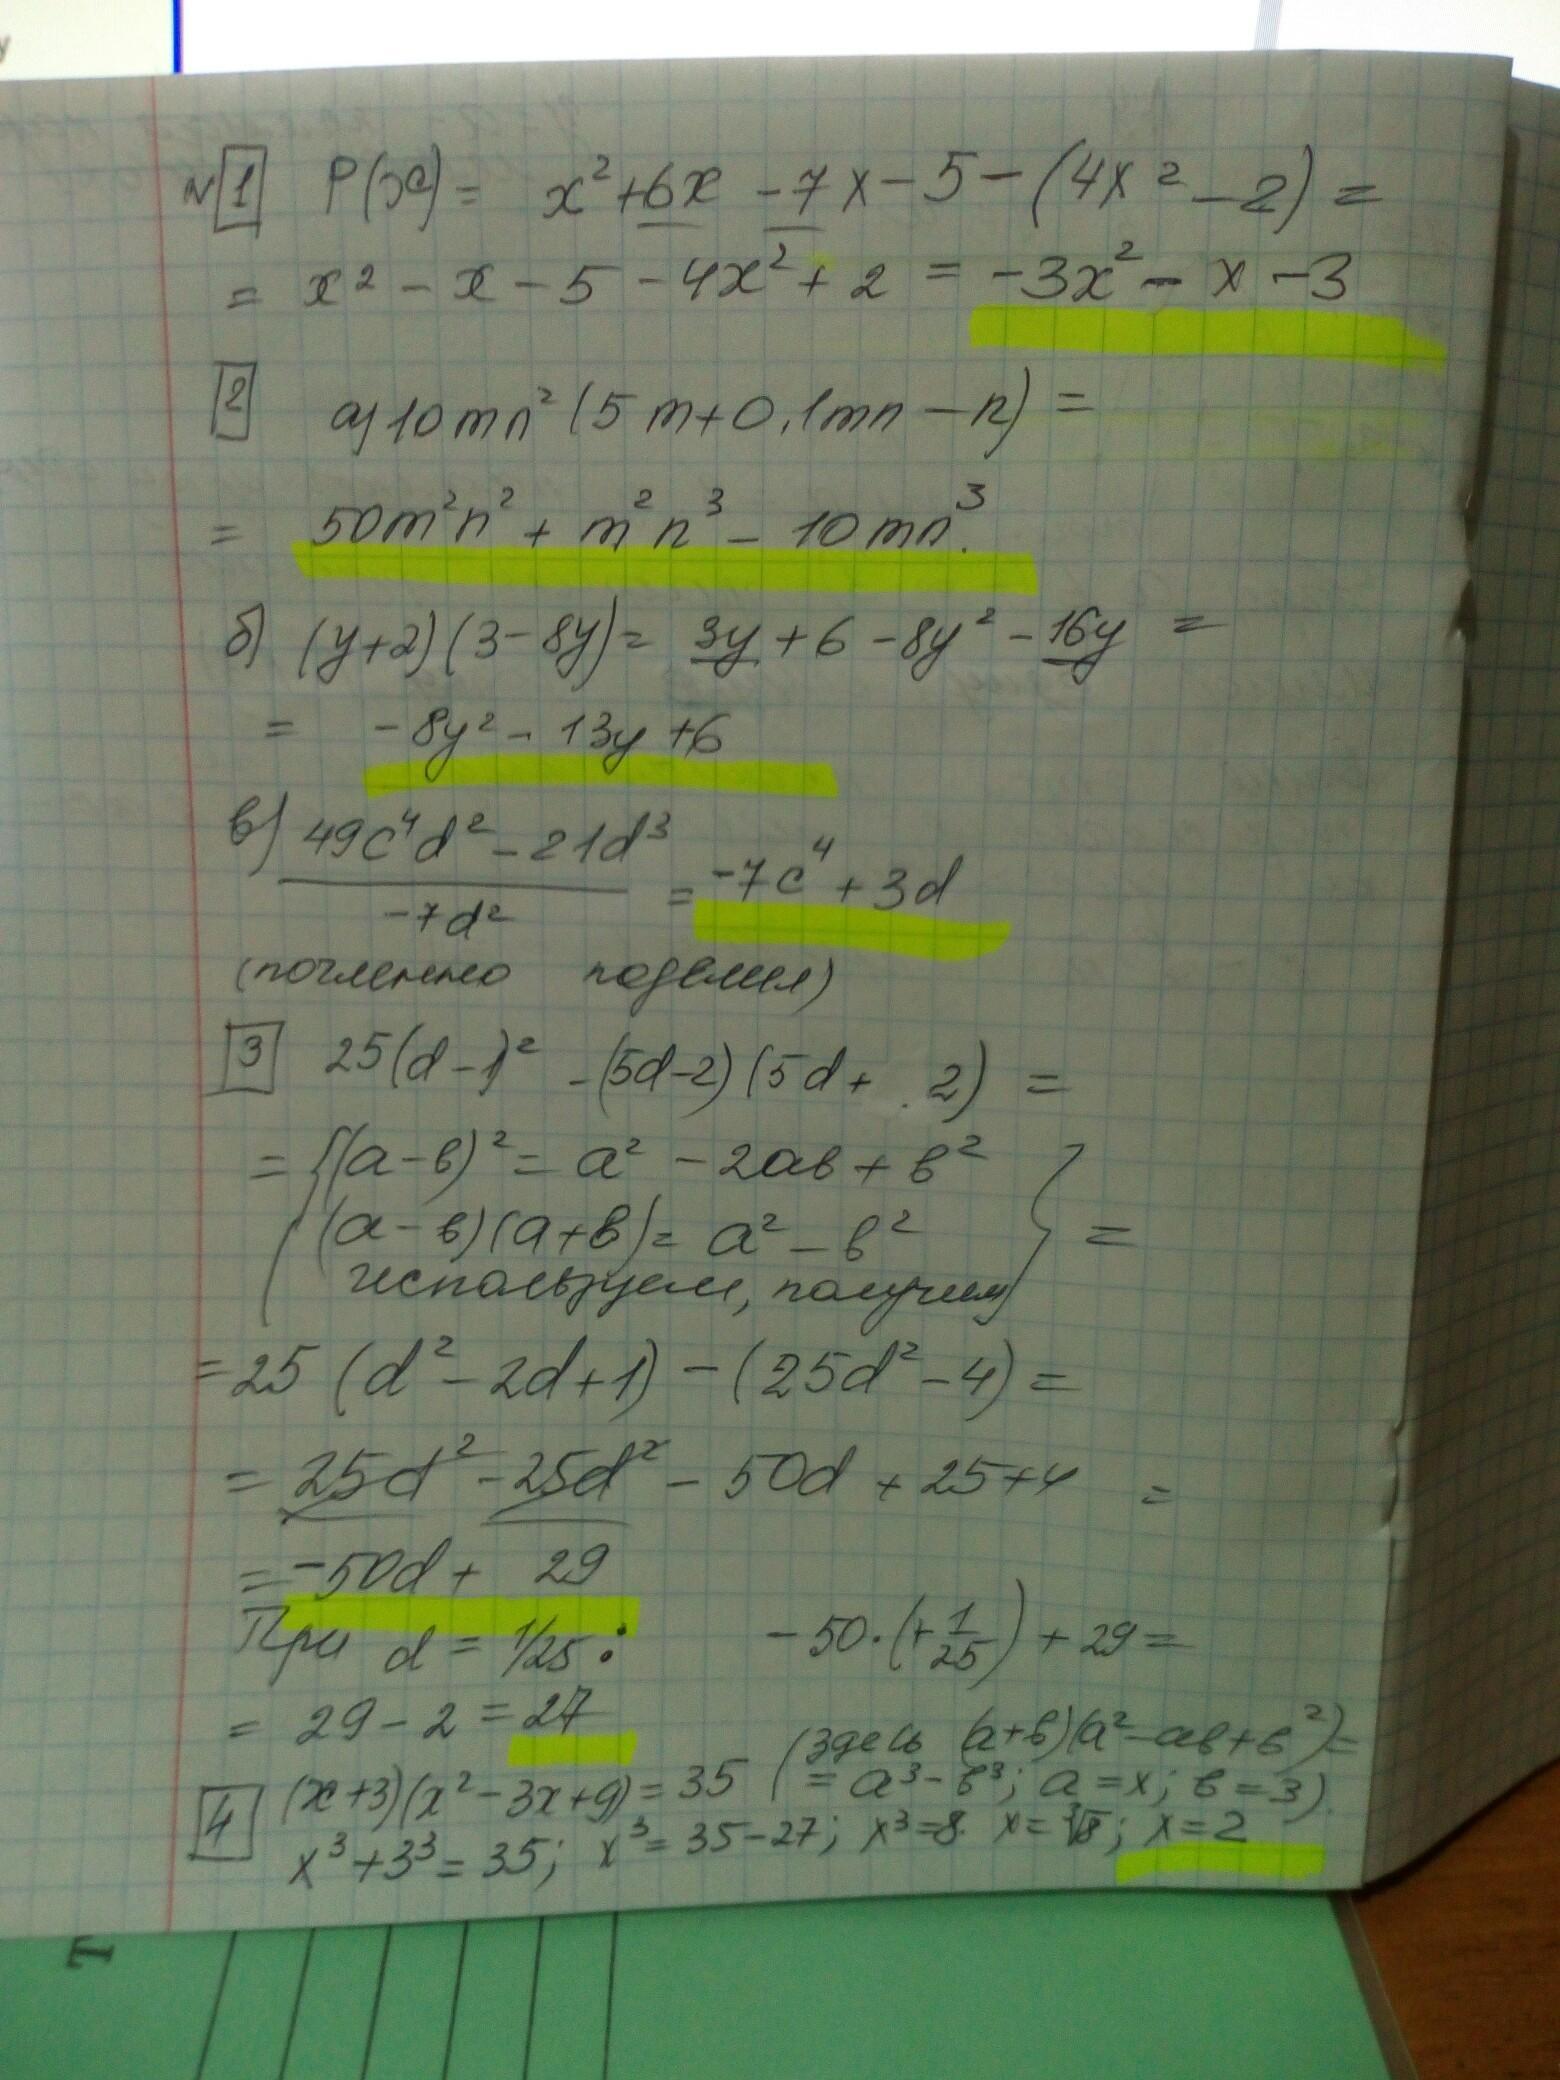 у
N 1 P(x) = x² + 6x - 7x - 5 - (4x² - 2) =
= x² - x - 5 - 4x² + 2 = -3x² - x - 3
2 а) 10mn² (5m + 0,1mn - n) =
= 50m²n² + m²n³ - 10mn³.
б) (y+2)(3-8y) = 3y + 6 - 8y² - 16y =
= -8y² - 13y + 6
в) (49c⁴d² - 21d³)/(-7d²) = -7c⁴ + 3d
(почленно поделил)
3 25(d-1)² - (5d-2)(5d+2) =
= {(а-в)² = а² - 2ав + в²
(а-в)(а+в) = а² - в² } =
используем, получим
= 25 (d² - 2d + 1) - (25d² - 4) =
= 25d² - 25d² - 50d + 25 + 4 =
= -50d + 29
При d = 1/25 : -50·(+1/25) + 29 =
= 29 - 2 = 27
(здесь (а+в)(а²-ав+в²)=
4 (x+3)(x²-3x+9) = 35 = а³-в³; а=x; в=3).
x³+3³=35; x³=35-27; x³=8. x=∛8; x=2
Т